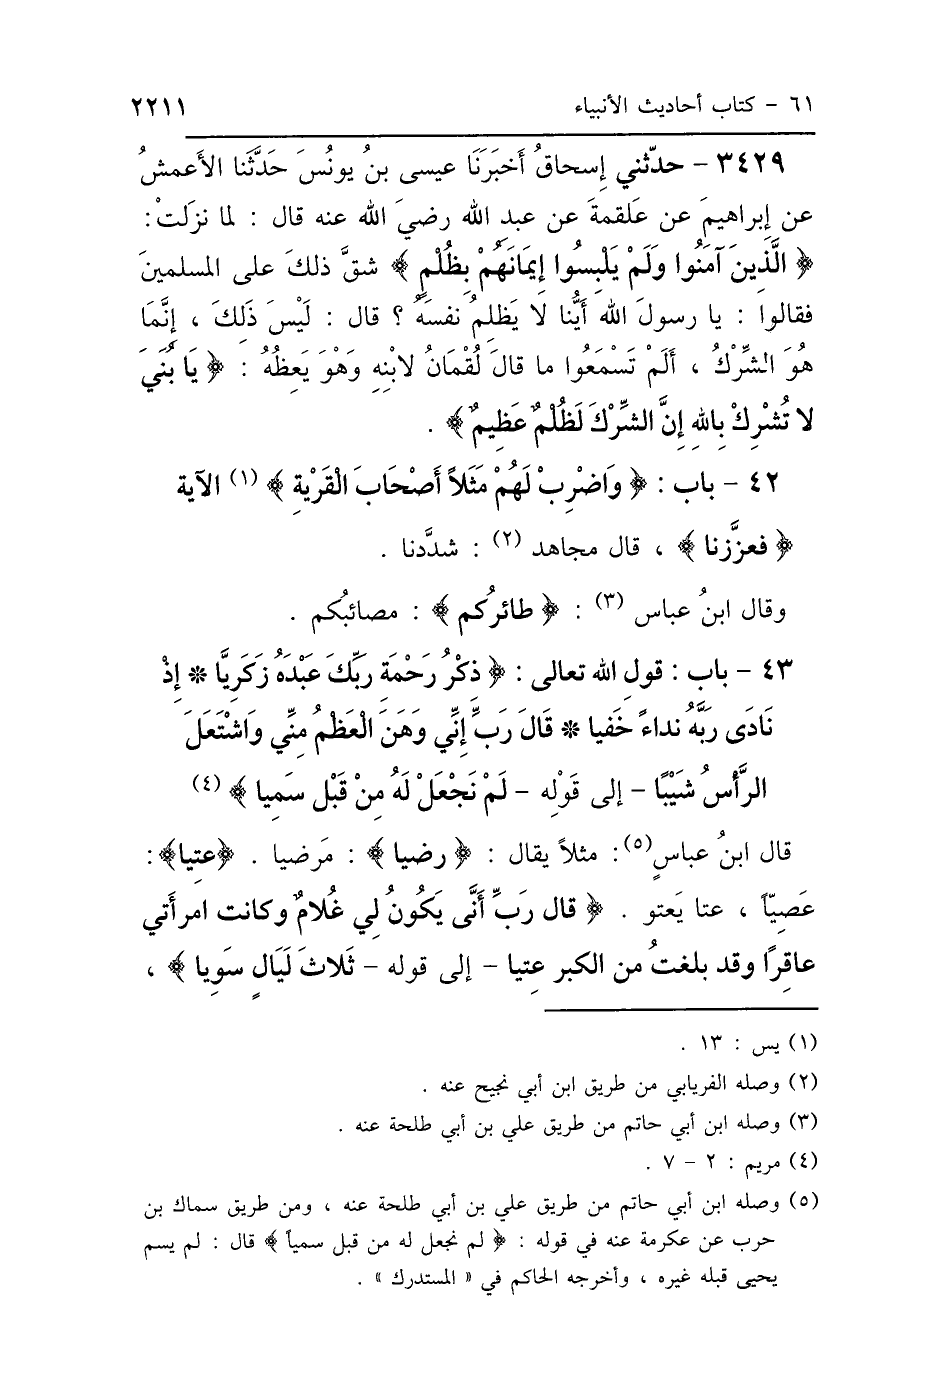 ٦١ - كتاب أحاديث الأنبياء ٢٢١١
٣٤٢٩ - حدّثني إسحاقُ أخبَرَنَا عيسى بنُ يونُسَ حَدَّثَنا الأعمشُ
عن إبراهيمَ عن عَلقمةَ عن عبدِ الله رضيَ الله عنه قال : لما نزَلتْ :
﴿ الَّذِينَ آمَنُوا وَلَمْ يَلْبِسُوا إِيمَانَهُمْ بِظُلْمٍ ﴾ شقَّ ذلكَ على المسلمينَ
فقالوا : يا رسولَ الله أيُّنا لا يَظلِمُ نفسَهُ ؟ قال : لَيْسَ ذَلِكَ ، إنَّمَا
هُوَ الشِّرْكُ ، أَلَمْ تَسْمَعُوا ما قالَ لُقْمَانُ لابْنِهِ وَهْوَ يَعِظُهُ : ﴿ يَا بُنَيَ
لا تُشْرِكْ بِاللهِ إِنَّ الشِّرْكَ لَظُلْمٌ عَظِيمٌ ﴾ .
٤٢ - باب : ﴿ وَاضْرِبْ لَهُمْ مَثَلاً أَصْحَابَ الْقَرْيَةِ ﴾ (١) الآية
﴿ فعزَّزنا ﴾ ، قال مجاهد (٢) : شدَّدنا .
وقال ابنُ عباس (٣) : ﴿ طائرُكم ﴾ : مصائبُكم .
٤٣ - باب : قولِ الله تعالى : ﴿ ذِكْرُ رَحْمَةِ رَبِّكَ عَبْدَهُ زَكَرِيَّا * إِذْ
نَادَى رَبَّهُ نداءً خَفيا * قَالَ رَبِّ إِنِّي وَهَنَ الْعَظْمُ مِنِّي وَاشْتَعَلَ
الرَّأْسُ شَيْبًا - إلى قَوْلِه - لَمْ نَجْعَلْ لَهُ مِنْ قَبْلُ سَمِيا ﴾ (٤)
قال ابنُ عباسٍ(٥): مثلاً يقال : ﴿ رضيا ﴾ : مَرضيا . ﴿عتِيا﴾:
عَصِيّاً ، عتا يَعتو . ﴿ قال رَبِّ أَنَّى يَكُونُ لِي غُلامٌ وكانت امرأَتي
عاقِرًا وقد بلغتُ من الكبر عِتيا - إلى قوله - ثَلاثَ لَيَالٍ سَوِيا ﴾ ،
(١) يس : ١٣ .
(٢) وصله الفريابي من طريق ابن أبي نجيح عنه .
(٣) وصله ابن أبي حاتم من طريق علي بن أبي طلحة عنه .
(٤) مريم : ٢ - ٧ .
(٥) وصله ابن أبي حاتم من طريق علي بن أبي طلحة عنه ، ومن طريق سماك بن
حرب عن عكرمة عنه في قوله : ﴿ لم نجعل له من قبل سمياً ﴾ قال : لم يسم
يحيى قبله غيره ، وأخرجه الحاكم في « المستدرك » .